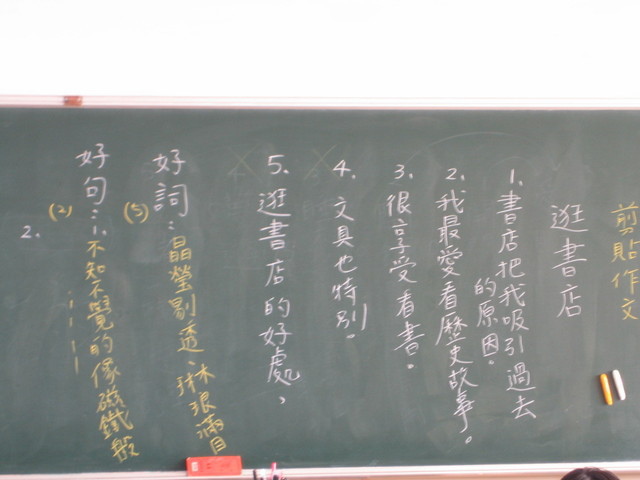 剪貼作文
逛書店
1.書店把我吸引過去
的原因。
2.我最愛看歷史故事。
3.很享受看書。
4.文具也特別。
5.逛書店的好處,
好詞:晶瑩剔透、琳琅滿目
(5)
好句:1.不知不覺的像磁鐵般
(2)
2.